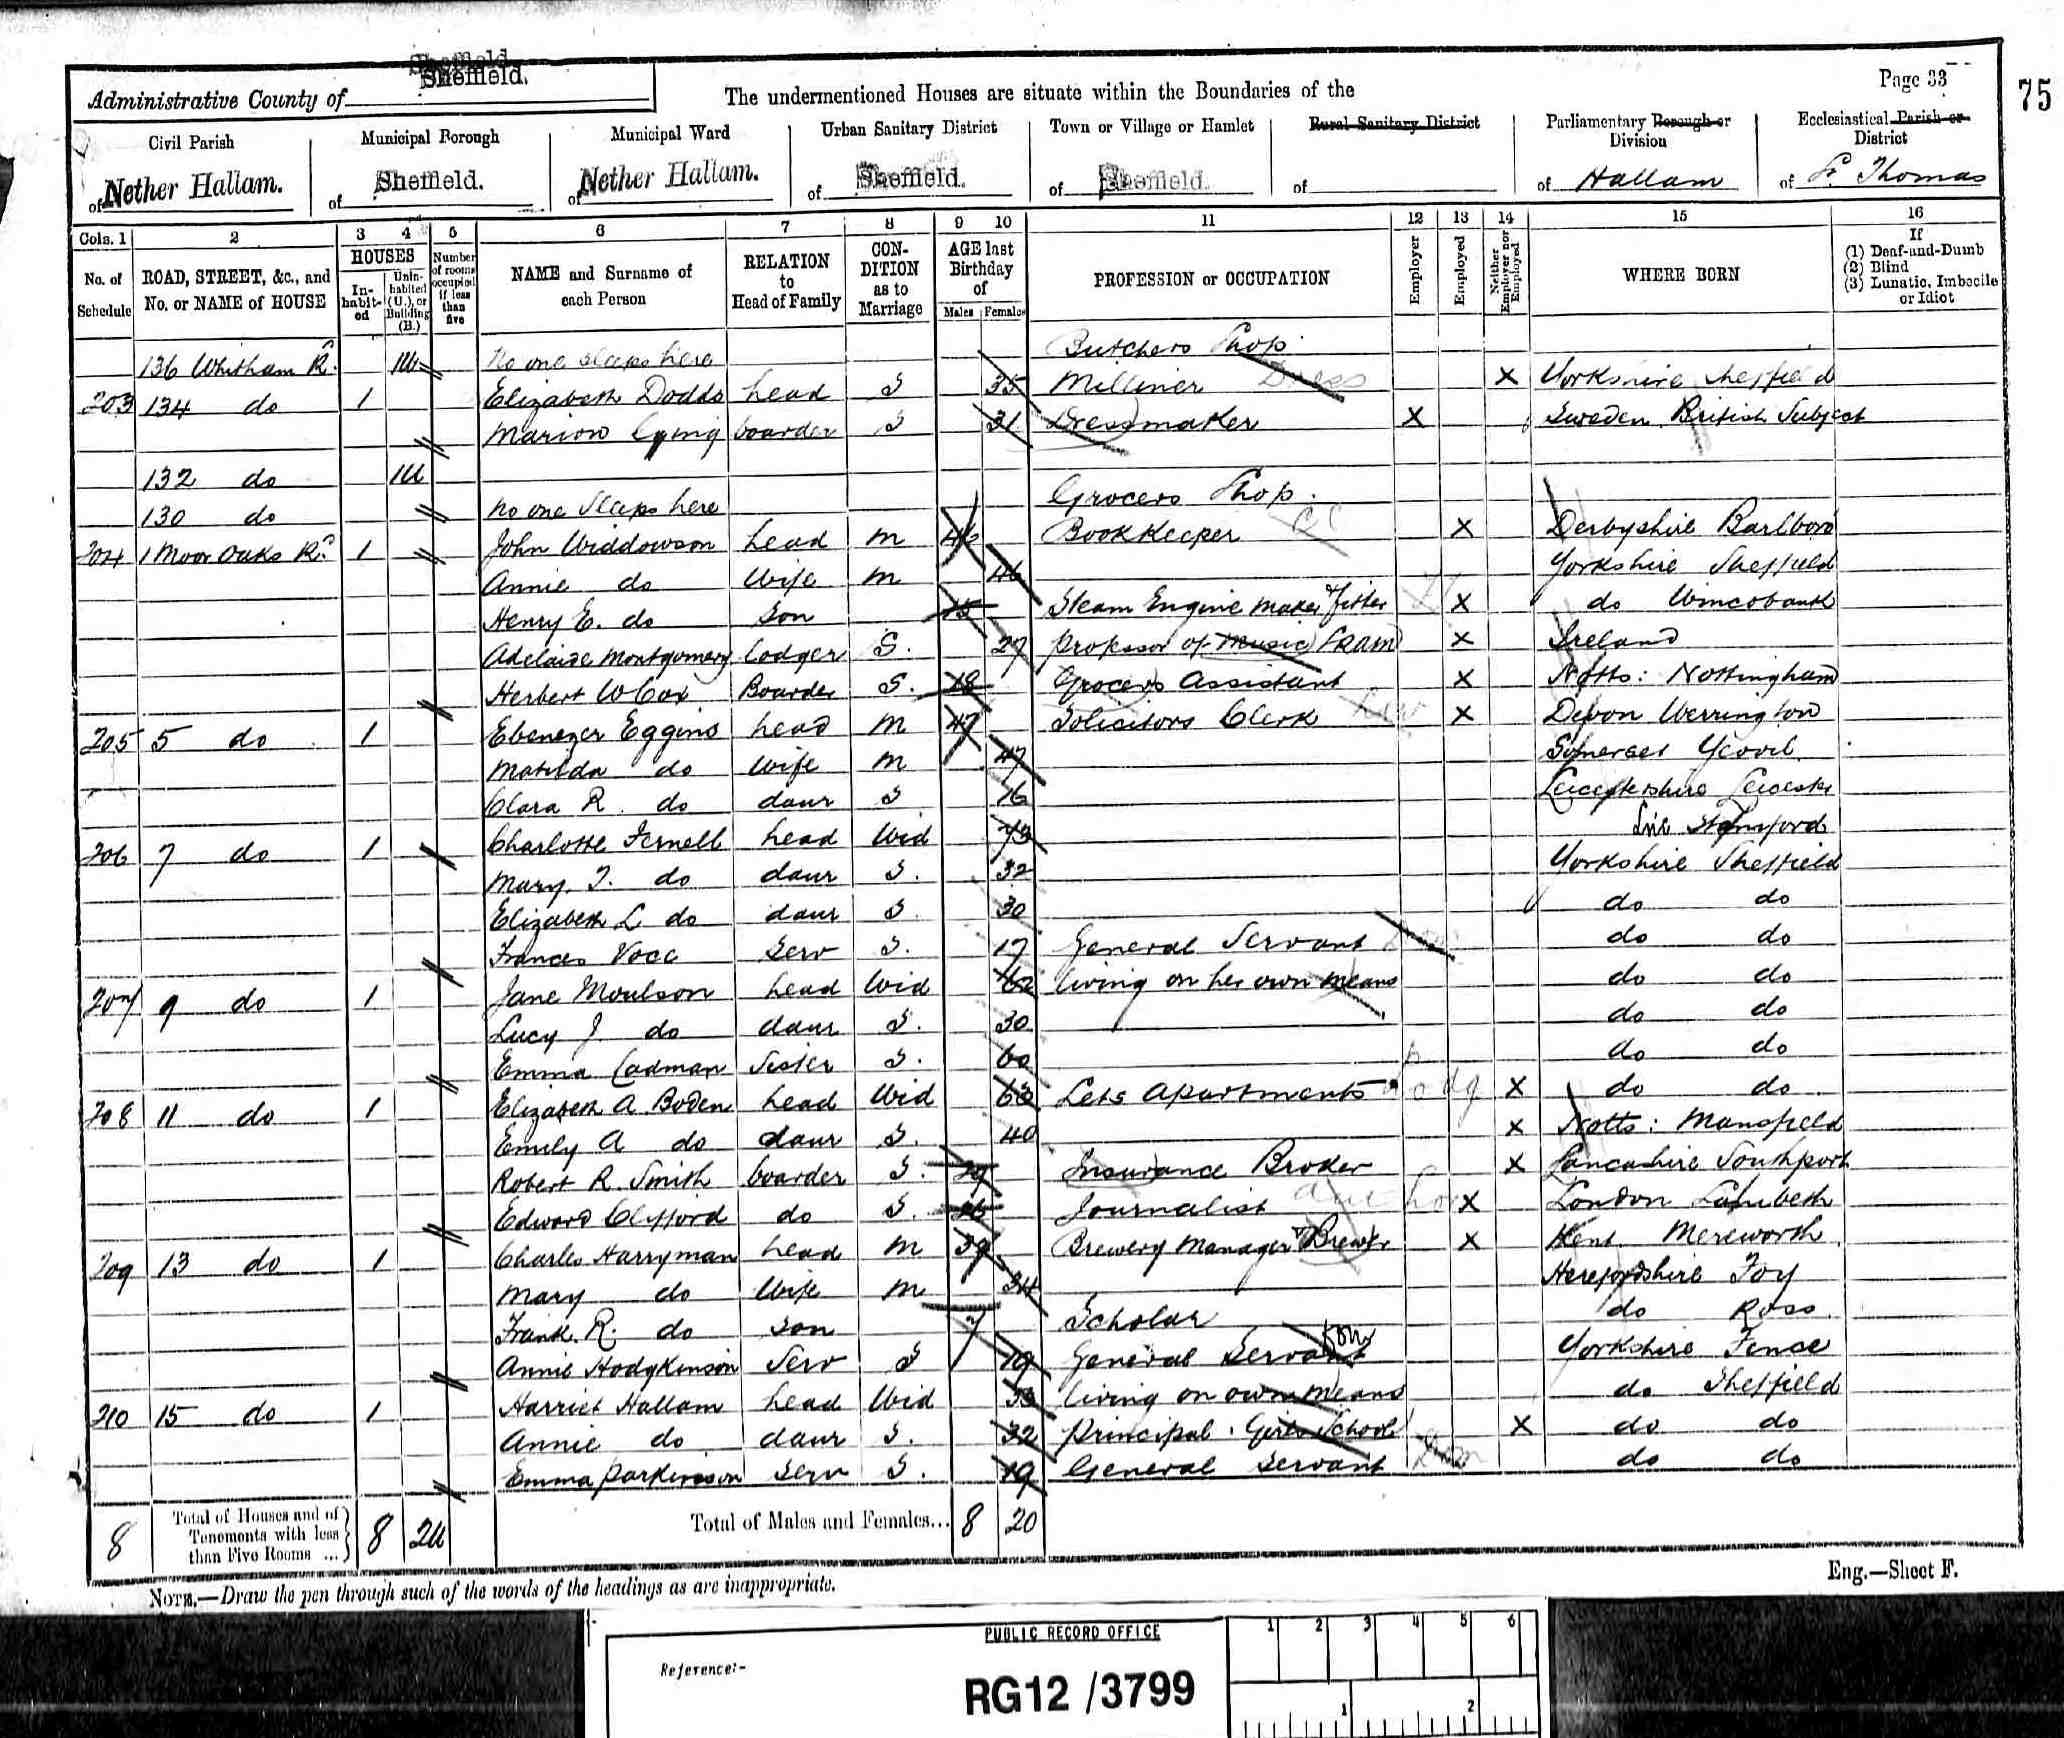 Page 33
75
Administrative County of Sheffield.
The undermentioned Houses are situate within the Boundaries of the
Civil Parish of Nether Hallam.
Municipal Borough of Sheffield.
Municipal Ward of Nether Hallam.
Urban Sanitary District of Sheffield.
Town or Village or Hamlet of Sheffield.
Rural Sanitary District of
Parliamentary Borough or Division of Hallam
Ecclesiastical Parish or District of St. Thomas
Cols. 1 2 3 4 5 6 7 8 9 10 11 12 13 14 15 16
No. of Schedule
ROAD, STREET, &c., and No. or NAME of HOUSE
HOUSES
Inhabited
Uninhabited (U.), or Building (B.)
Number of rooms occupied if less than five
NAME and Surname of each Person
RELATION to Head of Family
CONDITION as to Marriage
AGE last Birthday of
Males Females
PROFESSION or OCCUPATION
Employer
Employed
Neither Employer nor Employed
WHERE BORN
If
(1) Deaf-and-Dumb
(2) Blind
(3) Lunatic, Imbecile or Idiot
136 Whitham Rd. 1U No one sleeps here Butchers Shop
203 134 do 1 Elizabeth Dodds head S 35 Milliner X Yorkshire Sheffield
Marion boarder S 31 Dressmaker X Sweden British Subject
132 do 1U
130 do no one sleeps here Grocers Shop.
204 1 Moor Oaks Rd. 1 John Widdowson head M 46 Bookkeeper X Derbyshire Barlboro
Annie do Wife M 46 Yorkshire Sheffield
Henry E. do Son 15 Steam Engine Maker & fitter X do Wincobank
Adelaide Montgomery Lodger S. 27 Professor of Music (RAM) X Ireland
Herbert W Cox Boarder S. 18 Grocers Assistant X Notts: Nottingham
205 5 do 1 Ebenezer Eggins head M 47 Solicitors Clerk X Devon Werrington
Matilda do Wife M 47 Somerset Yeovil
Clara R. do daur S 16 Leicestershire Leicester
206 7 do 1 Charlotte Fernell head Wid 73 Lin Stamford
Mary. J. do daur S. 32 Yorkshire Sheffield
Elizabeth L do daur S 30 do do
Frances Serv S. 17 General Servant do do
207 9 do 1 Jane Moulson head Wid 62 living on her own means do do
Lucy J. do daur S. 30 do do
Emma Cadman Sister S. 60 do do
208 11 do 1 Elizabeth A. Boden head Wid 63 Lets Apartments X do do
Emily A do daur S. 40 X Notts: Mansfield
Robert R. Smith boarder S. 29 Insurance Broker X Lancashire Southport
Edward Clifford do S. 26 Journalist X London Lambeth
209 13 do 1 Charles Harryman head M 39 Brewery Manager Brewer X Kent Mereworth
Mary do Wife M 34 Herefordshire Foy
Frank. R. do Son 7 Scholar do Ross.
Annie Hodgkinson Serv S 19 General Servant Yorkshire Fence
210 15 do 1 Harriet Hallam head Wid 53 living on own means do Sheffield
Annie do daur S. 32 Principal. Girls School X do do
Emma Parkinson Serv S. 19 General Servant do do
8 Total of Houses and of Tenements with less than Five Rooms ... 8 2U Total of Males and Females... 8 20
NOTE.—Draw the pen through such of the words of the headings as are inappropriate.
Eng.—Sheet F.
PUBLIC RECORD OFFICE
1 2 3 4 5 6
Reference:-
RG12 /3799
1 2